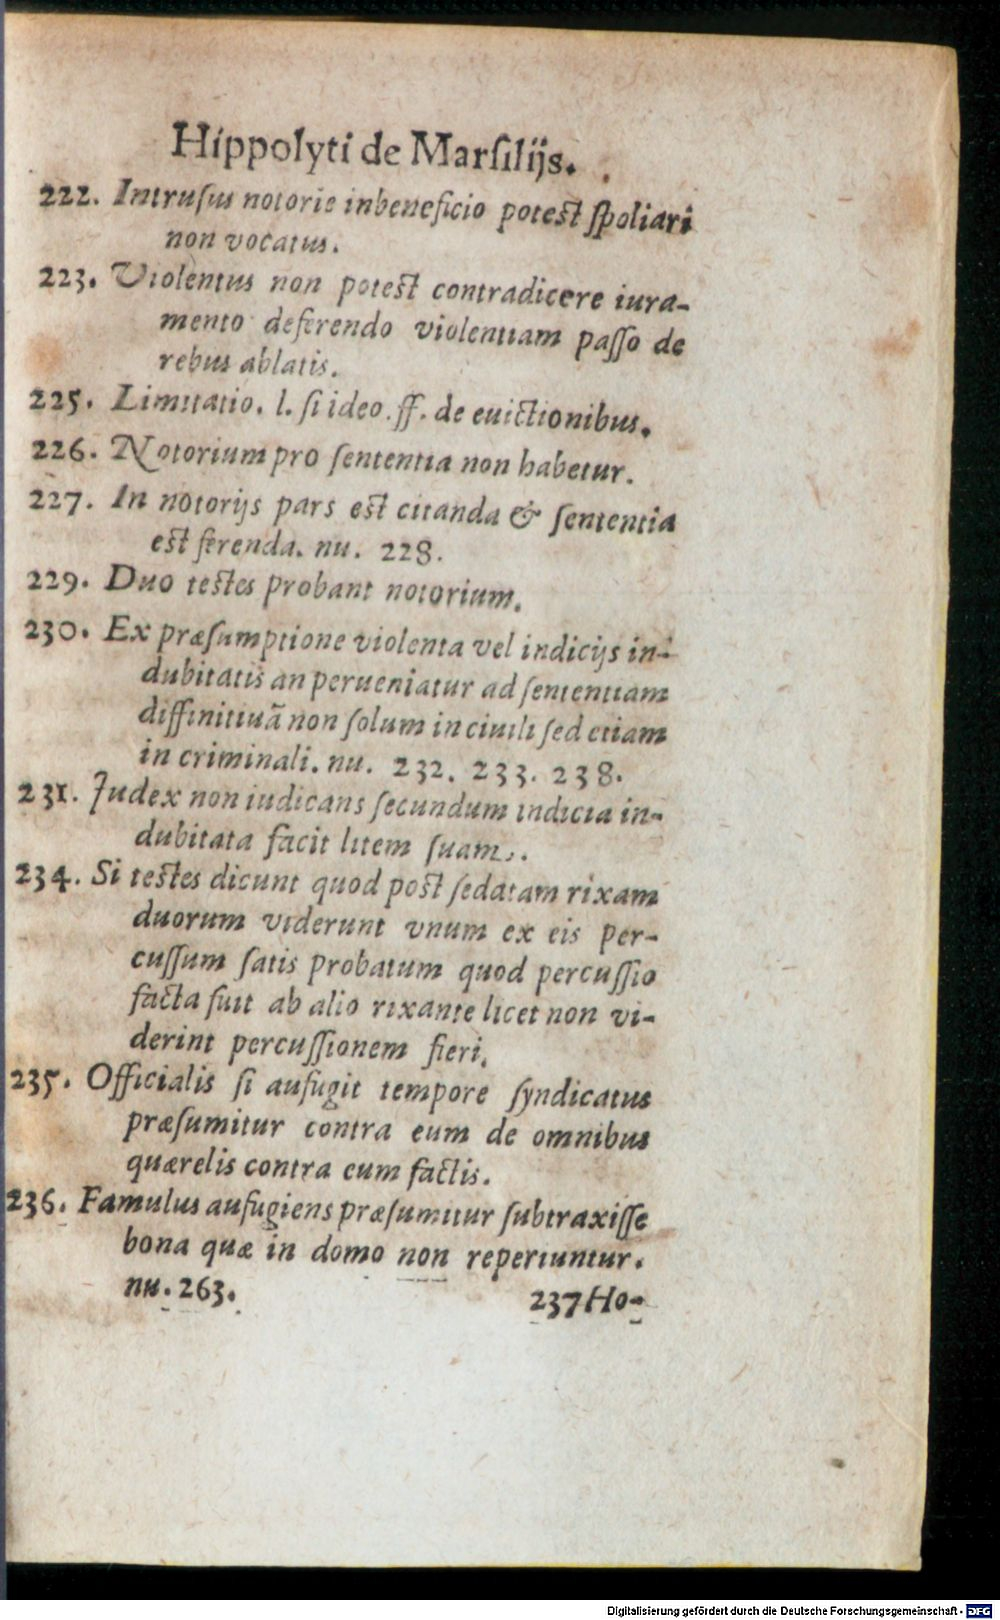 Hippolyti de Marſilijs.
222. Intruſus notorie inbeneficio poteſt ſpoliari
non vocatus.
223. Violentus non poteſt contradicere iura-
mento deferendo violentiam paſſo de
rebus ablatis.
225. Limitatio. l. ſi ideo. ff. de euictionibus.
226. Notorium pro ſententia non habetur.
227. In notorijs pars eſt citanda & ſententia
eſt ferenda. nu. 228.
229. Duo teſtes probant notorium.
230. Ex præſumptione violenta vel indicijs in-
dubitatis an perueniatur ad ſententiam
diffinitiuã non ſolum in ciuili ſed etiam
in criminali. nu. 232. 233. 238.
231. Judex non iudicans ſecundum indicia in-
dubitata facit litem ſuam.
234. Si teſtes dicunt quod poſt ſedatam rixam
duorum viderunt vnum ex eis per-
cuſſum ſatis probatum quod percuſſio
facta fuit ab alio rixante licet non vi-
derint percuſſionem fieri.
235. Officialis ſi aufugit tempore ſyndicatus
præſumitur contra eum de omnibus
quærelis contra eum factis.
236. Famulus aufugiens præſumitur ſubtraxiſſe
bona quæ in domo non reperiuntur.
nu. 263.
237 Ho-
Digitalisierung gefördert durch die Deutsche Forschungsgemeinschaft - DFG